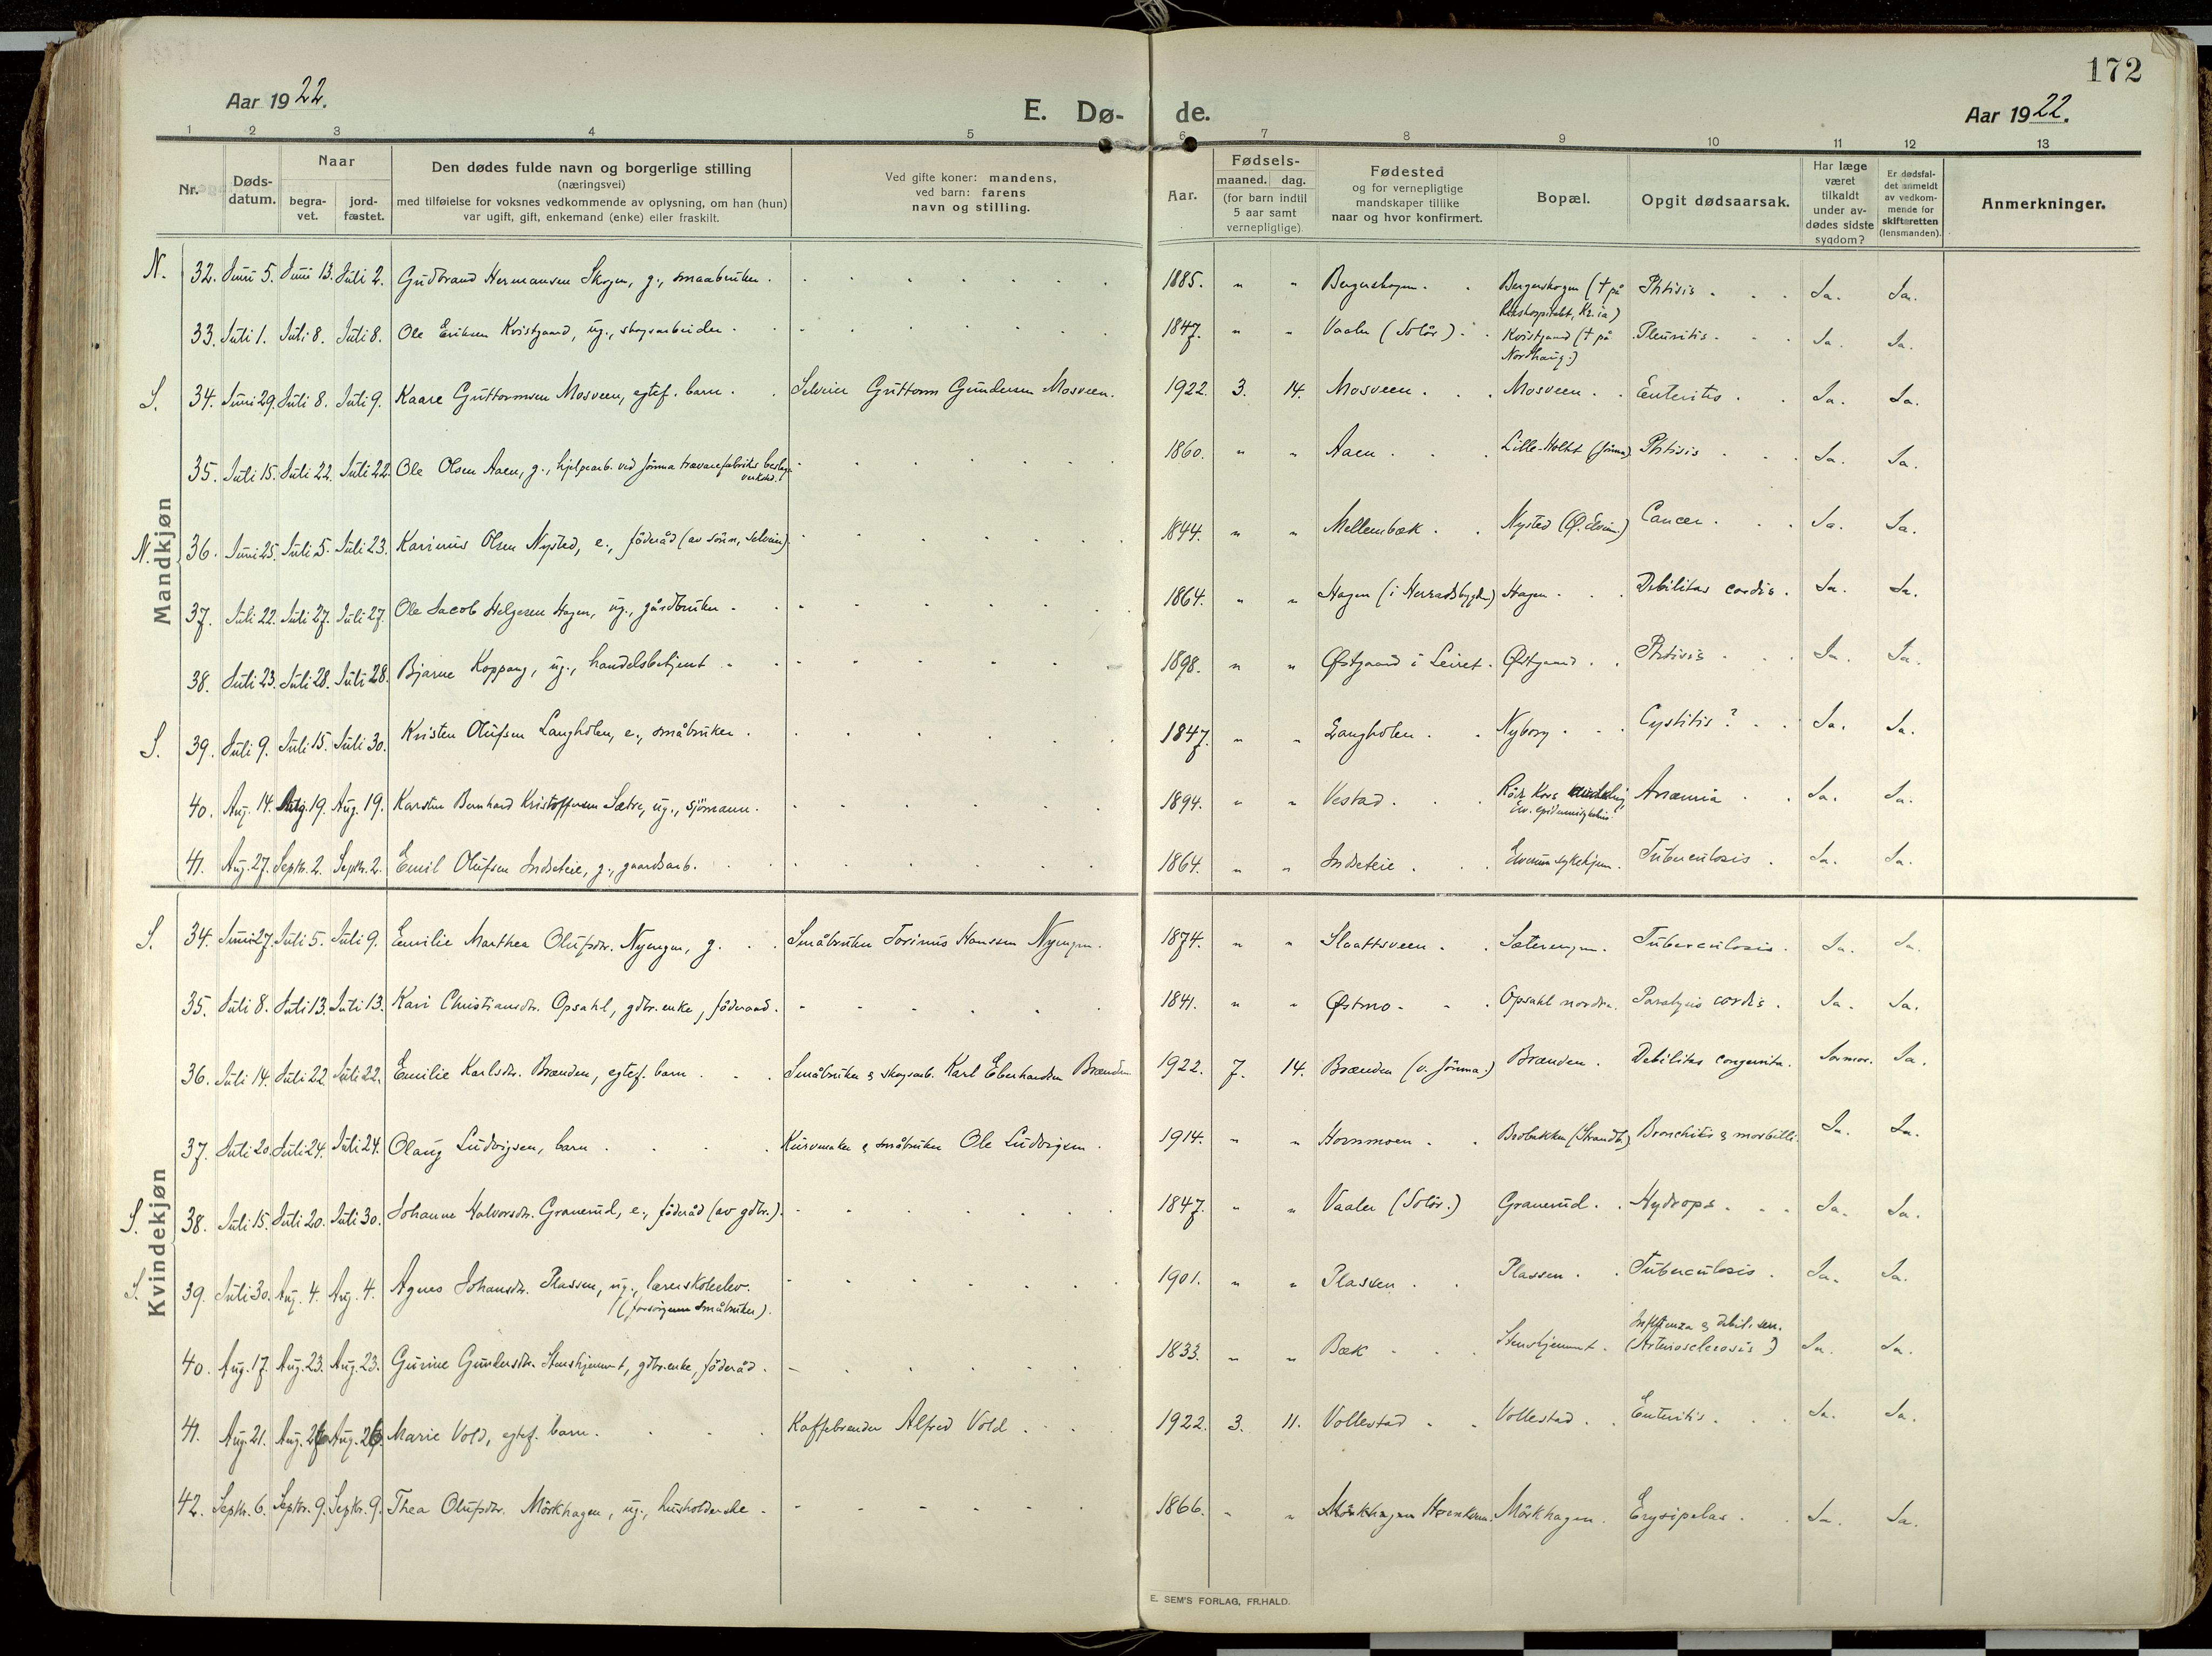 172
Aar 1922.
E. Dø- de.
Aar 1922.
1 2 3 4 5 6 7 8 9 10 11 12 13
Nr.
Døds-
datum.
Naar
begra-
vet.
jord-
fæstet.
Den dødes fulde navn og borgerlige stilling
(næringsvei)
med tilføielse for voksnes vedkommende av oplysning, om han (hun)
var ugift, gift, enkemand (enke) eller fraskilt.
Ved gifte koner: mandens,
ved barn: farens
navn og stilling.
Aar.
Fødsels-
maaned. dag.
(for barn indtil
5 aar samt
vernepligtige)
Fødested
og for vernepligtige
mandskaper tillike
naar og hvor konfirmert.
Bopæl.
Opgit dødsaarsak.
Har læge
været
tilkaldt
under av-
dødes sidste
sygdom?
Er dødsfal-
det anmeldt
av vedkom-
mende for
skifteretten
(lensmanden).
Anmerkninger.
Mandkjøn
N. 32. Juni 5. Juni 13. Juli 2. Gudbrand Hermansen Skogen, g., smaabruker. 1885. " " Bergerskogen. Bergerskogen († på Rikshospitalet, Kr.ia) Phtisis. Ja. Ja.
33. Juli 1. Juli 8. Juli 8. Ole Eriksen Kvistgaard, ug., skogsarbeider. 1847. " " Vaaler (Solør). Kvistgaard († på Nordhaug.) Pleuritis. Ja. Ja.
S. 34. Juni 29. Juli 8. Juli 9. Kaare Guttormsen Mosveen, egtef. barn. Selveier Guttorm Gundersen Mosveen. 1922. 3. 14. Mosveen. Mosveen. Enteritis. Ja. Ja.
35. Juli 15. Juli 22. Juli 22. Ole Olsen Aaen, g., hjelpearb. ved Jømna trævarefabriks verksted. 1860. " " Aaen. Lille-Holtet (Jømna) Phtisis. Ja. Ja.
N. 36. Juni 25. Juli 5. Juli 23. Karinus Olsen Nysted, e., föderåd (av sönn, selveier). 1844. " " Mellembæk. Nysted (Ø. Elvrum) Cancer. Ja. Ja.
37. Juli 22. Juli 27. Juli 27. Ole Jacob Helgesen Hagen, ug., gårdbruker. 1864. " " Hagen (i Hernadsbygden) Hagen. Debilitas cordis. Ja. Ja.
38. Juli 23. Juli 28. Juli 28. Bjarne Koppang, ug., handelsbetjent. 1898. " " Østgaard i Leiret. Østgaard. Phtisis. Ja. Ja.
S. 39. Juli 9. Juli 15. Juli 30. Kristen Olufsen Langholen, e., småbruker. 1847. " " Langholen. Nyborg. Cystitis? Ja. Ja.
40. Aug. 14. Aug. 19. Aug. 19. Karsten Bernhard Kristoffersen Sætre, ug., sjömann. 1894. " " Vestad. Röde Kors Elv. epidemisykehus. Anæmia. Ja. Ja.
41. Aug. 27. Septr. 2. Septr. 2. Emil Olufsen Indseteie, g., gaardsarb. 1864. " " Indseteie. Elverum sykehjem. Tuberculosis. Ja. Ja.
Kvindekjøn
S. 34. Juni 27. Juli 5. Juli 9. Emilie Marthea Olufsdtr. Nyengen, g. Småbruker Torinus Hanssen Nyengen. 1874. " " Slaattsveen. Sæterengen. Tuberculosis. Ja. Ja.
35. Juli 8. Juli 13. Juli 13. Kari Christiansdtr. Opsahl, gdbr.enke, föderaad. 1841. " " Østmo. Opsahl nordre. Paralysis cordis. Ja. Ja.
36. Juli 14. Juli 22. Juli 22. Emilie Karlsdtr. Brænden, egtef. barn. Småbruker & skogsarb. Karl Eberhardsen Brænden. 1922. 7. 14. Brænden (v. Jömna.) Brænden. Debilitas congenita. Jormor. Ja.
37. Juli 20. Juli 24. Juli 24. Olaug Ludvigsen, barn. Kurvmaker & småbruker Ole Ludvigsen. 1914. " " Hornmoen. Brobakken (Strandb.) Bronchitis & morbilli. Ja. Ja.
S. 38. Juli 15. Juli 20. Juli 30. Johanne Halvorsdtr. Granerud, e., föderåd (av gdbr.). 1847. " " Vaaler (Solör.) Granerud. Hydrops. Ja. Ja.
S. 39. Juli 30. Aug. 4. Aug. 4. Agnes Johansdtr. Plassen, ug., lærerskoleelev. (forsörgeren småbruker). 1901. " " Plassen. Plassen. Tuberculosis. Ja. Ja.
40. Aug. 17. Aug. 23. Aug. 23. Gurine Gundersdtr. Stenshjemmet, gdbr.enke, föderåd. 1833. " " Bæk Stenshjemmet. Influenza & debil. sen. (Arteriosclerosis?) Ja. Ja.
41. Aug. 21. Aug. 26. Aug. 26. Marie Vold, egtef. barn. Kaffebrender Alfred Vold. 1922. 3. 11. Vollestad. Vollestad. Enteritis. Ja. Ja.
42. Septr. 6. Septr. 9. Septr. 9. Thea Olufsdtr. Mörkhagen, ug., husholderske. 1866. " " Mörkhagen. Mörkhagen. Erysipelas. Ja. Ja.
E. SEM'S FORLAG, FR.HALD.